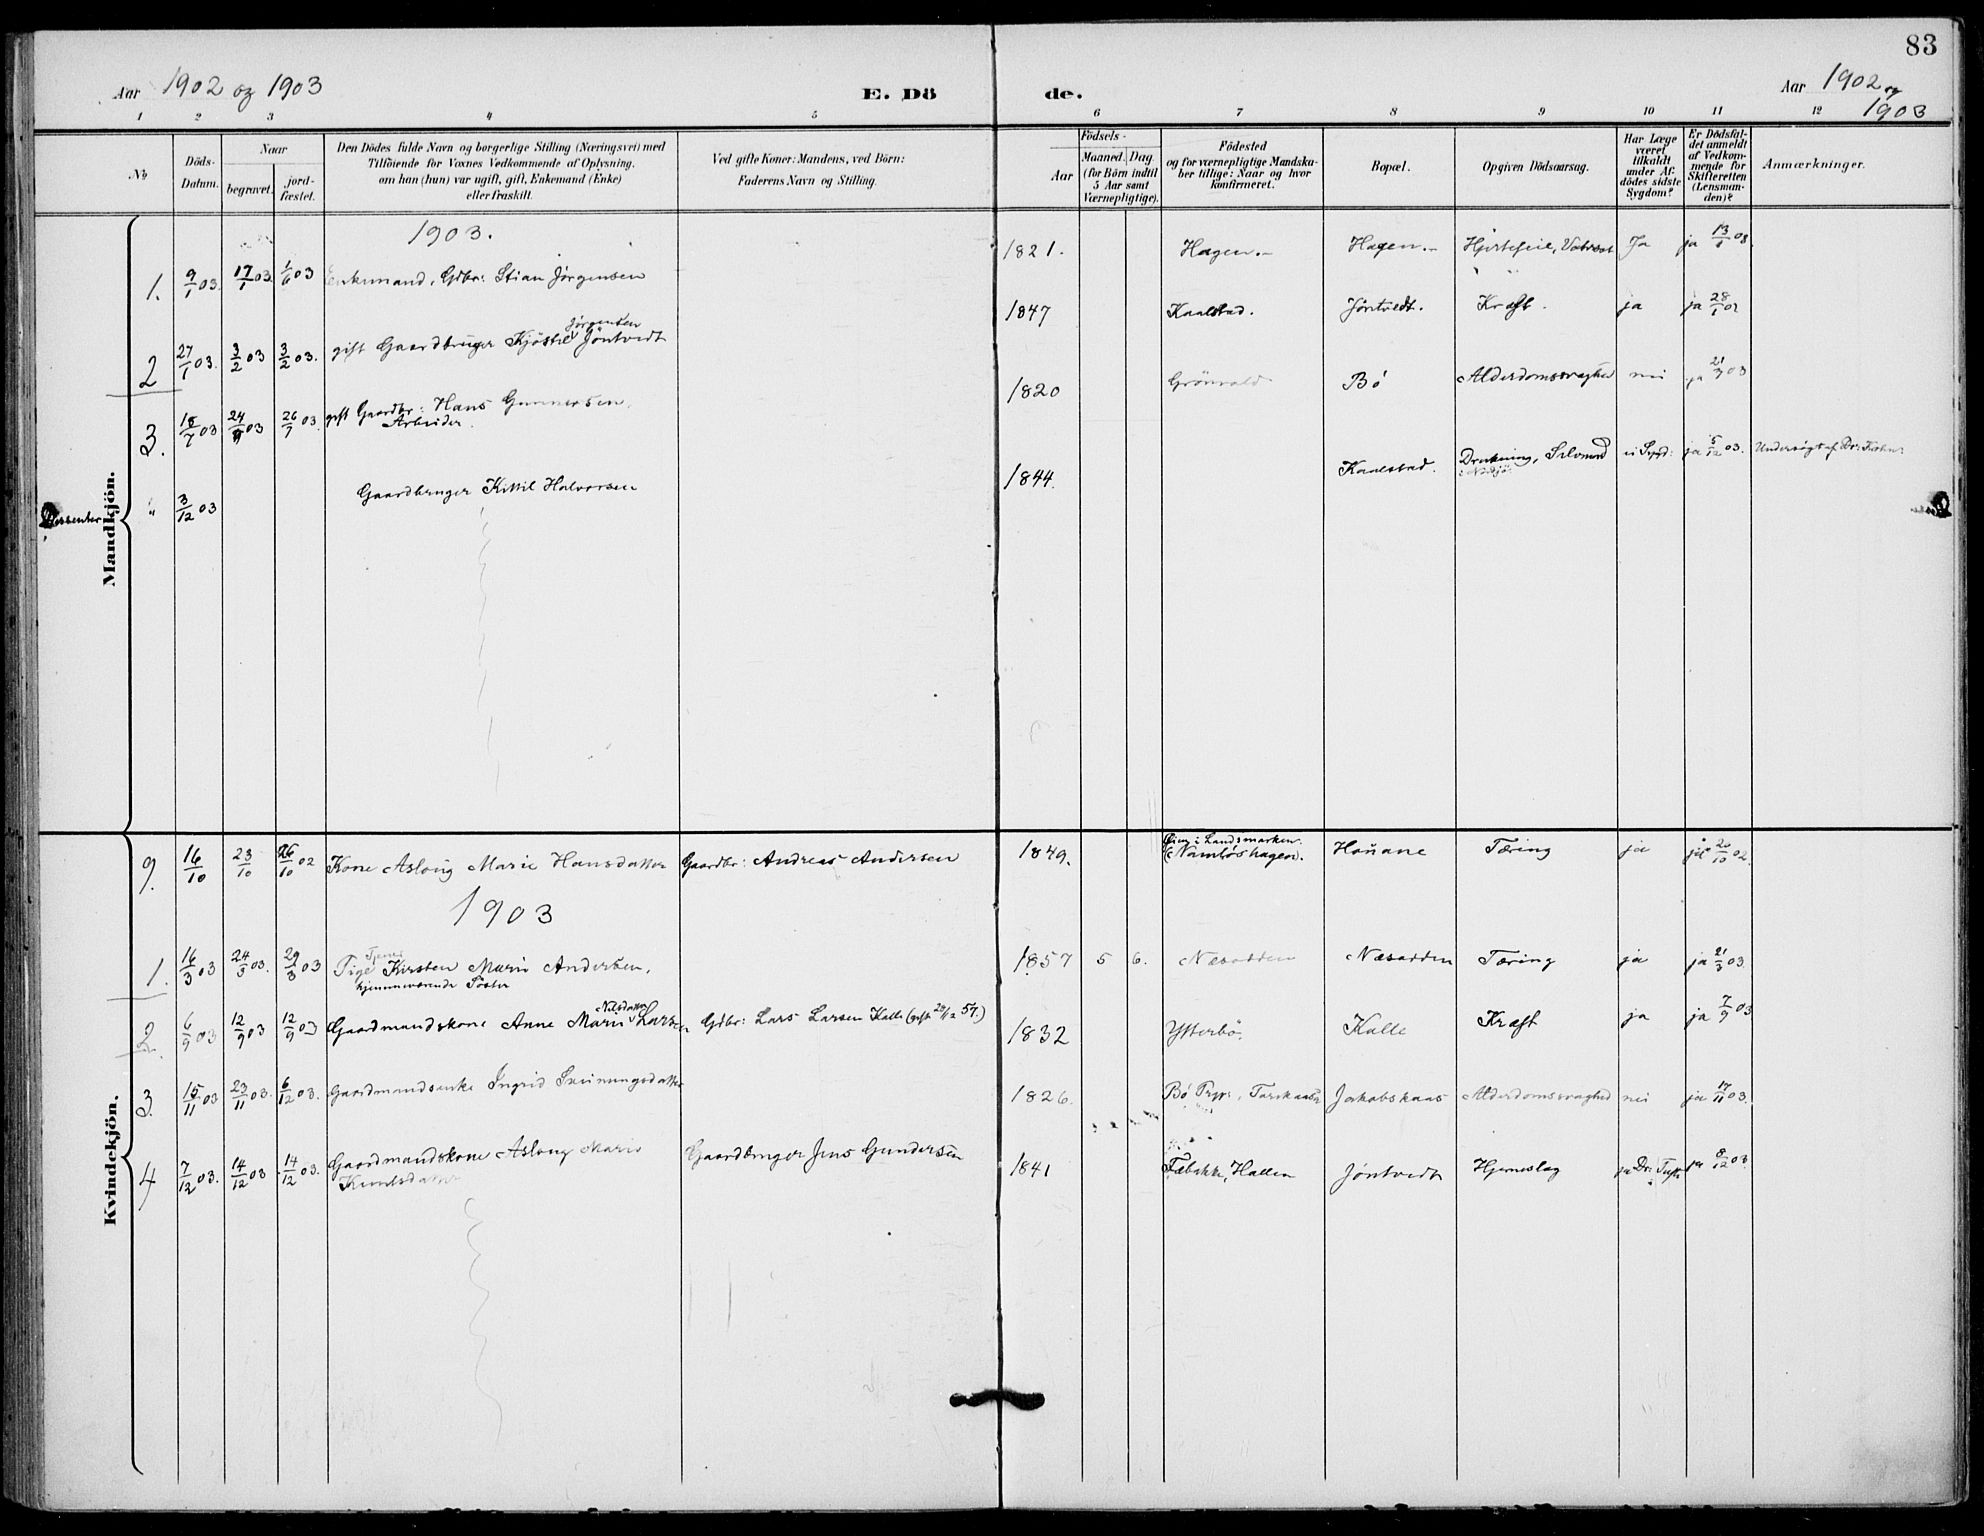 83
Aar 1902 og 1903
E. Dö
de.
Aar 1902 og
1903
1 2 3 4 5 6 7 8 9 10 11 12
No
Döds-
Datum.
Naar
begravet.
jord-
fæstet.
Den Dödes fulde Navn og borgerlige Stilling (Næringsvei) med
Tilföiende for Voxnes Vedkommende af Oplysning,
om han (hun) var ugift, gift, Enkemand (Enke)
eller fraskilt.
Ved gifte Koner: Mandens, ved Börn:
Faderens Navn og Stilling.
Födsels-
Aar
Maaned. Dag
(for Börn indtil
5 Aar samt
Værnepligtige).
Födested
og for værnepligtige Mandska-
ber tillige: Naar og hvor
konfirmeret.
Bopæl.
Opgiven Dödsaarsag.
Har Læge
været
tilkaldt
under Af-
dödes sidste
Sygdom?
Er Dödsfal-
det anmeldt
af Vedkom-
mende for
Skifteretten
(Lensman-
den)?
Anmærkninger.
Mandkjön.
1903.
1. 9/1 03. 17/1 03. 1/6 03 Enkemand, Gdbr: Stian Jörgensen 1821. Hagen.- Hagen.- Hjertefeil, Vatersot Ja ja 13/1 03
Jörgensen
2 27/1 03. 3/2 03 3/2 03. gift Gaardbruger Kjöstel Jöntvedt 1847 Kaalstad. Jöntvedt. Kræft. ja ja 28/1 03
3. 15/7 03 24/7 03 26/7 03. gift Gaardbr: Hans Gunnersen, 1820 Grönvald Bö Alderdomssvaghed nei ja 21/7 03
Arbeider.
Dissenter " 3/12 03 Gaardbruger Kittil Halvorsen 1844. Kaalstad. Drukning, Selvmord ei Sygd: ja 5/12 03. Undersögt af Dr:
Kvindekjön.
9. 16/10 23/10 26/10 02 Kone Aslaug Marie Hansdatter Gaardbr: Andreas Andersen 1849. Øien i Landsmarken. Hoñane Tæring ja ja 20/10 02.
(Namlöshagen).
1903
1. 16/3 03 24/3 03. 29/3 03 Pige Kirsten Marie Andersen, 1857 5 6. Næsodden Næsodden Tæring ja ja 21/3 03.
hjemmeværende Söster
Nilsdatter
2. 6/9 03 12/9 03 12/9 03 Gaardmandskone Anne Marie Larsen Gdbr: Lars Larsen Kalle (gift 29/12 57.) 1832 Ytterbö. Kalle Kræft ja ja 7/9 03
3. 15/11 03 23/11 03. 6/12 03. Gaardmandsenke Ingrid Sveinungsdatter 1826. Bö Jakobskaas Alderdomssvaghed nei ja 17/11 03.
4 7/12 03. 14/12 03 14/12 03. Gaardmandskone Aslaug Marie Gaardbruger Jens Gundersen 1841 Fæbakke, Hallen Jöntvedt Hjerneslag ja Dr: ja 8/12 03.
Knudsdatter